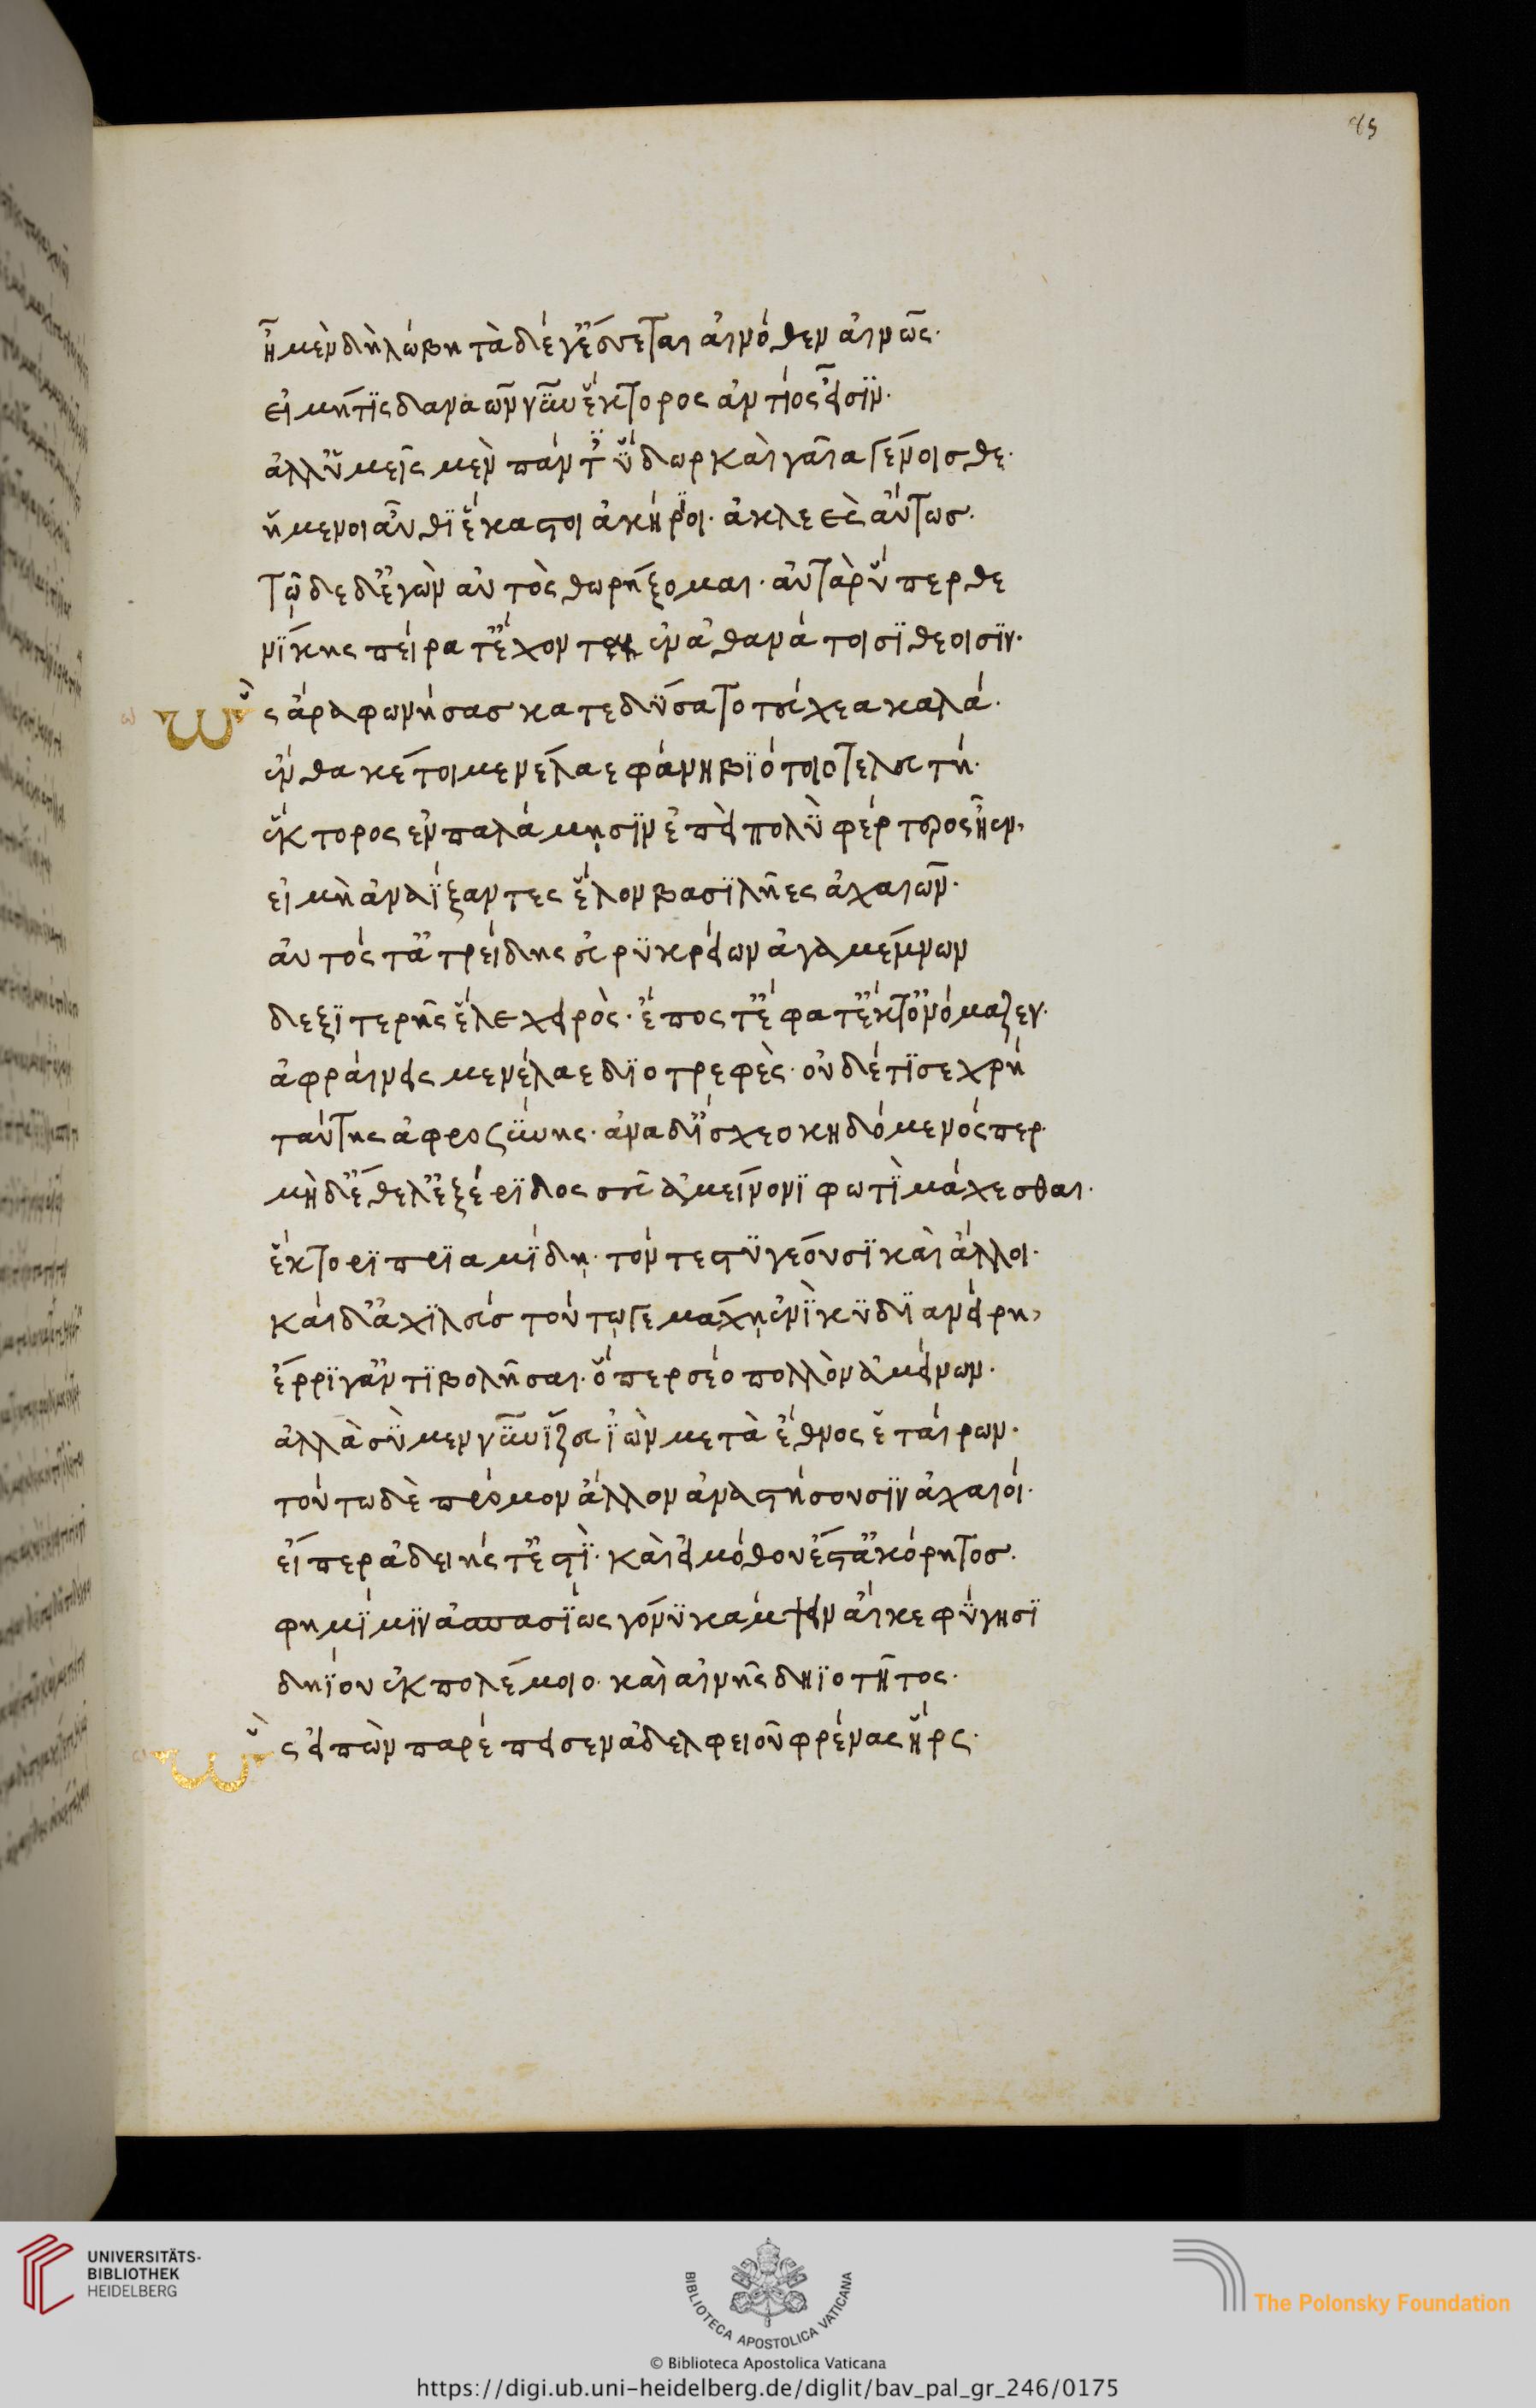 85
ἦ μὲν δὴ λώβη τὰ δέ γ' ἔσσεται αἰνόθεν αἰνῶς·
εἰ μή τϊς δαναῶν νῦν ἕκτορος ἀντίος εἶσϊν·
ἀλλ' ὑμεῖς μὲν πάντ' ὕδωρ καὶ γαῖα γένοισθε·
ἥμενοι αὖθϊ ἕκαστοι ἀκήρϊοι· ἀκλεὲς αὔτως·
τῷδε δ' ἐγὼν αὐτὸς θωρήξομαι· αὐτὰρ ὕπερθε
νίκης πείρατ' ἔχονται ἐν ἀθανάτοισϊ θεοῖσϊν·
ὣς ἄρα φωνήσας κατεδύσατο τεύχεα καλά·
ἔνθα κέ τοι μενέλαε φάνη βϊότοιο τελευτή·
ἕκτορος ἐν παλάμῃσϊν ἐπεὶ πολὺ φέρτερος ἦεν,
εἰ μὴ ἀναΐξαντες ἕλον βασϊλῆες ἀχαιῶν·
αὐτός τ' ἀτρείδης εὐρὺ κρείων ἀγαμέμνων
δεξϊτερῆς ἕλε χειρὸς· ἔπος τ' ἔφατ' ἔκ τ' ὀνόμαζεν·
ἀφραίνεις μενέλαε δϊοτρεφὲς· οὐδέ τϊ σε χρή
ταύτης ἀφροσύνης· ἀνὰ δ' ἴσχεο κηδόμενός περ·
μὴ δ' ἔθελ' ἐξ ἔρϊδος σεῦ ἀμείνονϊ φωτὶ μάχεσθαι·
ἕκτορϊ πρϊαμίδῃ· τόν τε στυγέουσϊ καὶ ἄλλοι·
καὶ δ' ἀχϊλεύς τούτῳ γε μάχῃ ἐνὶ κυδϊανείρη,
ἔρρϊγ' ἀντϊβολῆσαι· ὅπερ σέο πολλὸν ἀμείνων·
ἀλλὰ σὺ μεν νῦν ἵζευ ἰὼν μετὰ ἔθνος ἑταίρων·
τούτω δὲ πρόμον ἄλλον ἀναστήσουσϊν ἀχαιοί·
εἴπερ ἀδειής τ' ἐστὶ· καὶ εἰ μόθου ἔστ' ἀκόρητος·
φημί μϊν ἀσπασίως γόνυ κάμψειν αἴ κε φύγησϊ
δηΐου ἐκ πολέμοιο· καὶ αἰνῆς δηϊοτῆτος·
ὣς εἰπὼν παρέπεισεν ἀδελφειοῦ φρένας ἥρως·
UNIVERSITÄTS-
BIBLIOTHEK
HEIDELBERG
BIBLIOTECA APOSTOLICA VATICANA
The Polonsky Foundation
© Biblioteca Apostolica Vaticana
https://digi.ub.uni-heidelberg.de/diglit/bav_pal_gr_246/0175